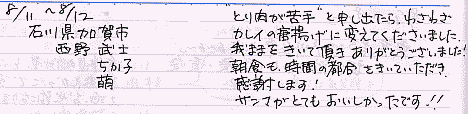 8/11 〜8/12
石川県加賀市
西野 武士
ちか子
萌
"とり肉が苦手"と申し出たら、わざわざ
カレイの唐揚げに変えてくださいました。
我ままをきいて頂きありがとうございました!
朝食も、時間の都合をきいていただき
感謝します!
サンマがとてもおいしかったです!!